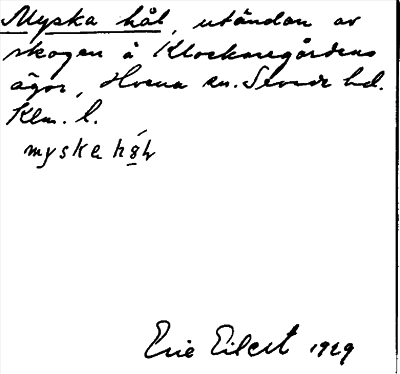 Myska hål, utändan av
skogen å Klockaregårdens
ägor, Hvena sn. Sevede hd.
Klm. l.
myska hål
Eric Eilert 1929